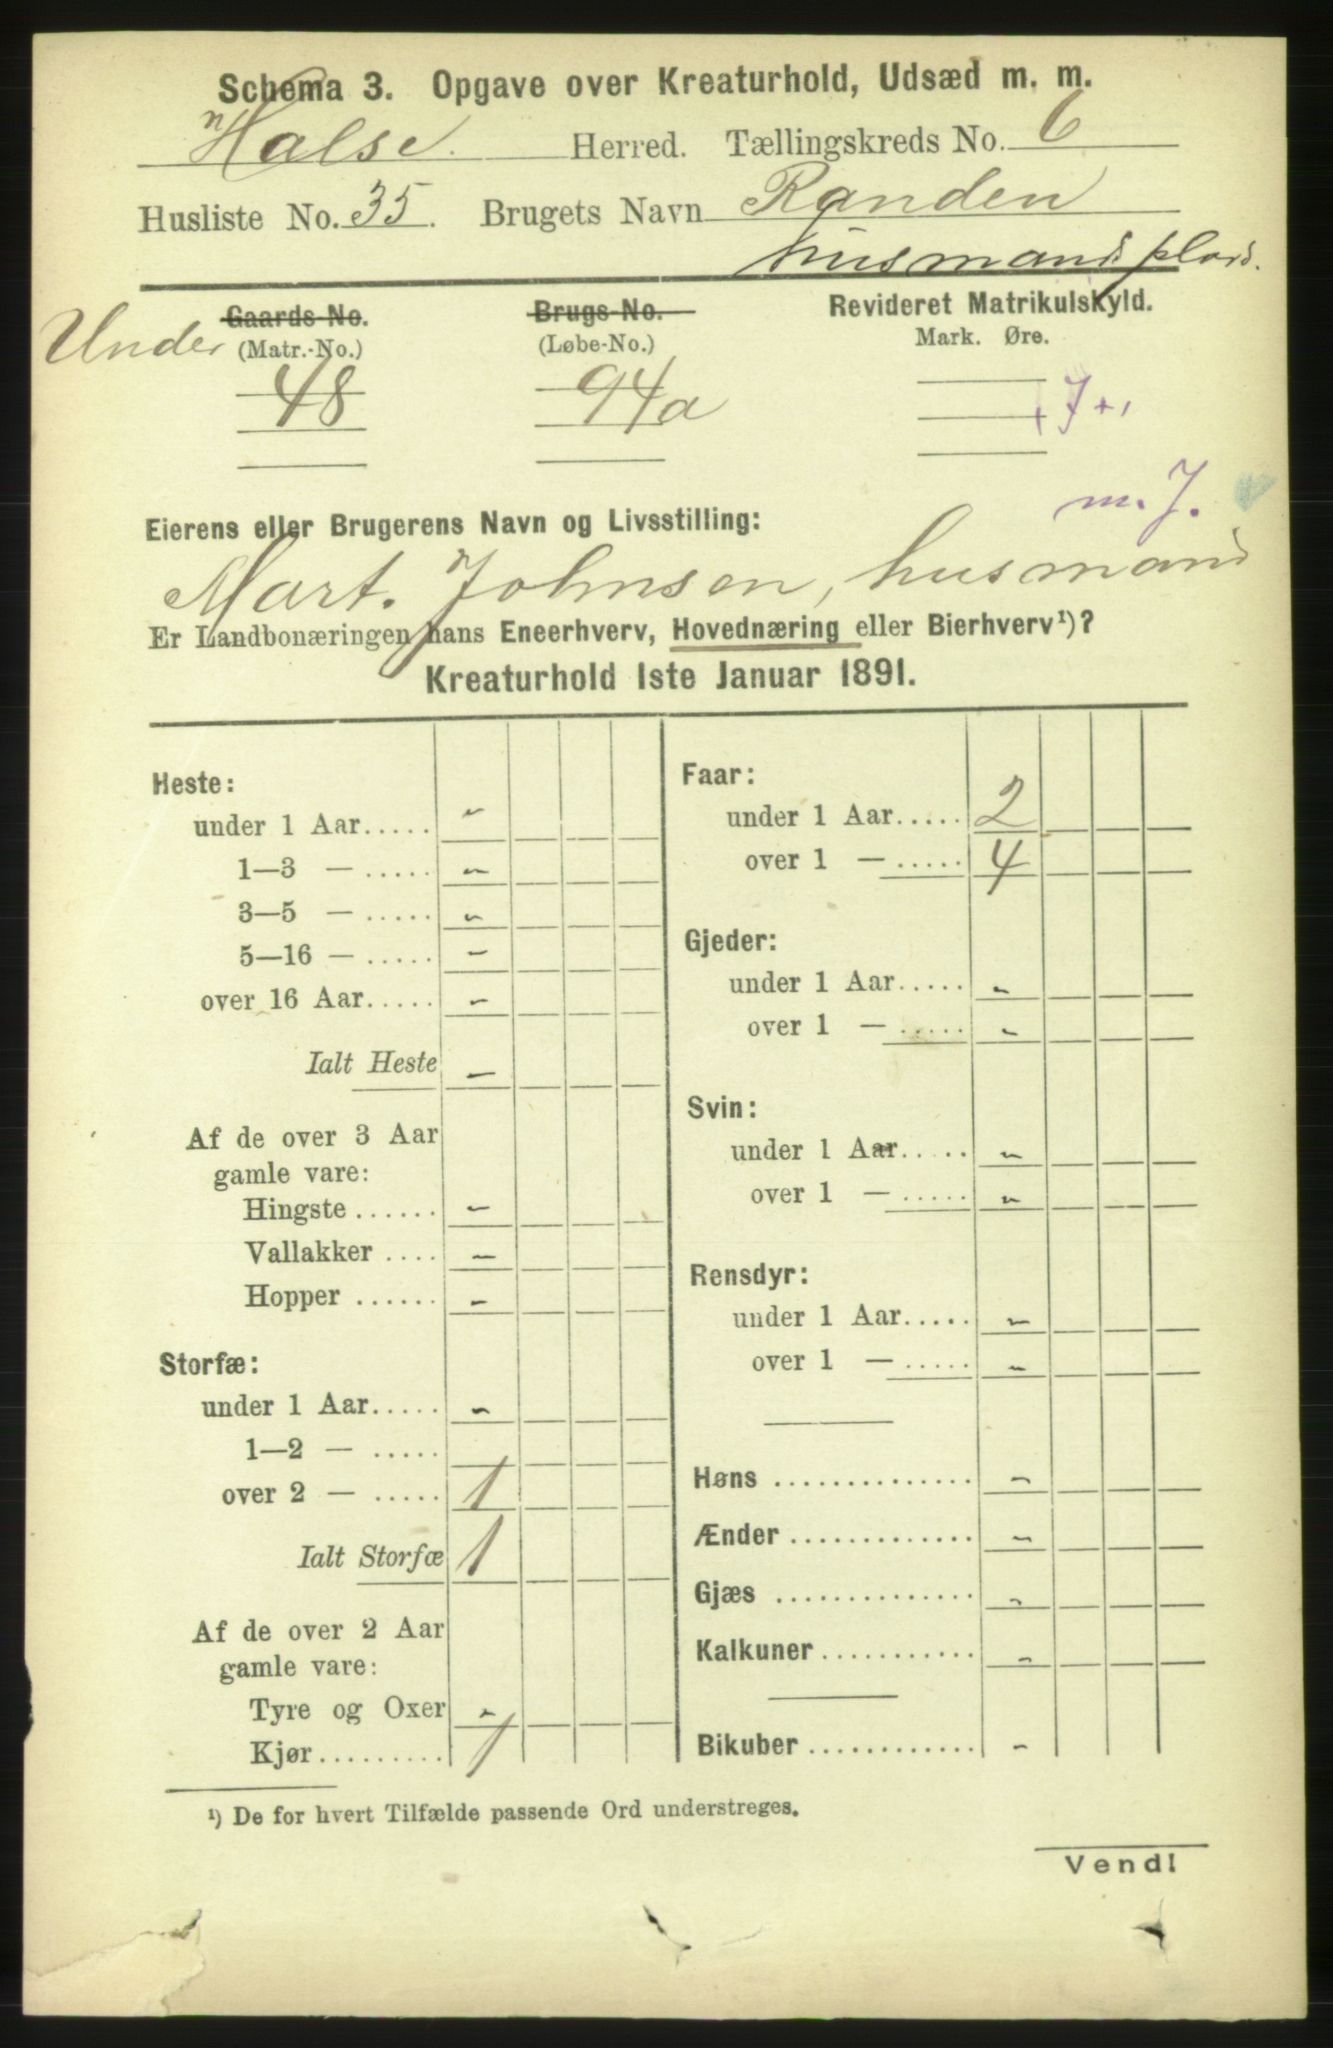 Schema 3. Opgave over Kreaturhold, Udsæd m. m.
Halse. Herred. Tællingskreds No. 6
Husliste No. 35. Brugets Navn Randen
husmandsplads.
Under Gaards-No. Brugs-No. Revideret Matrikulskyld.
(Matr.-No.) (Løbe-No.) Mark. Øre.
48 94a
m. J.
Eierens eller Brugerens Navn og Livsstilling:
Mart. Johnsen, husmand
Er Landbonæringen hans Eneerhverv, Hovednæring eller Bierhverv¹)?
Kreaturhold 1ste Januar 1891.
Heste:
under 1 Aar..... -
1—3 — ..... -
3—5 — ..... -
5—16 — ..... -
over 16 Aar..... -
Ialt Heste -
Af de over 3 Aar
gamle vare:
Hingste ...... -
Vallakker .... -
Hopper ...... -
Storfæ:
under 1 Aar..... -
1—2 — .....
over 2 — ..... 1
Ialt Storfæ 1
Af de over 2 Aar
gamle vare:
Tyre og Oxer -
Kjør......... 1
Faar:
under 1 Aar..... 2
over 1 — ..... 4
Gjeder:
under 1 Aar..... -
over 1 — ..... -
Svin:
under 1 Aar..... -
over 1 — ..... -
Rensdyr:
under 1 Aar..... -
over 1 — ..... -
Høns .............. -
Ænder ............. -
Gjæs .............. -
Kalkuner ........... -
Bikuber ............ -
¹) De for hvert Tilfælde passende Ord understreges.
Vend!